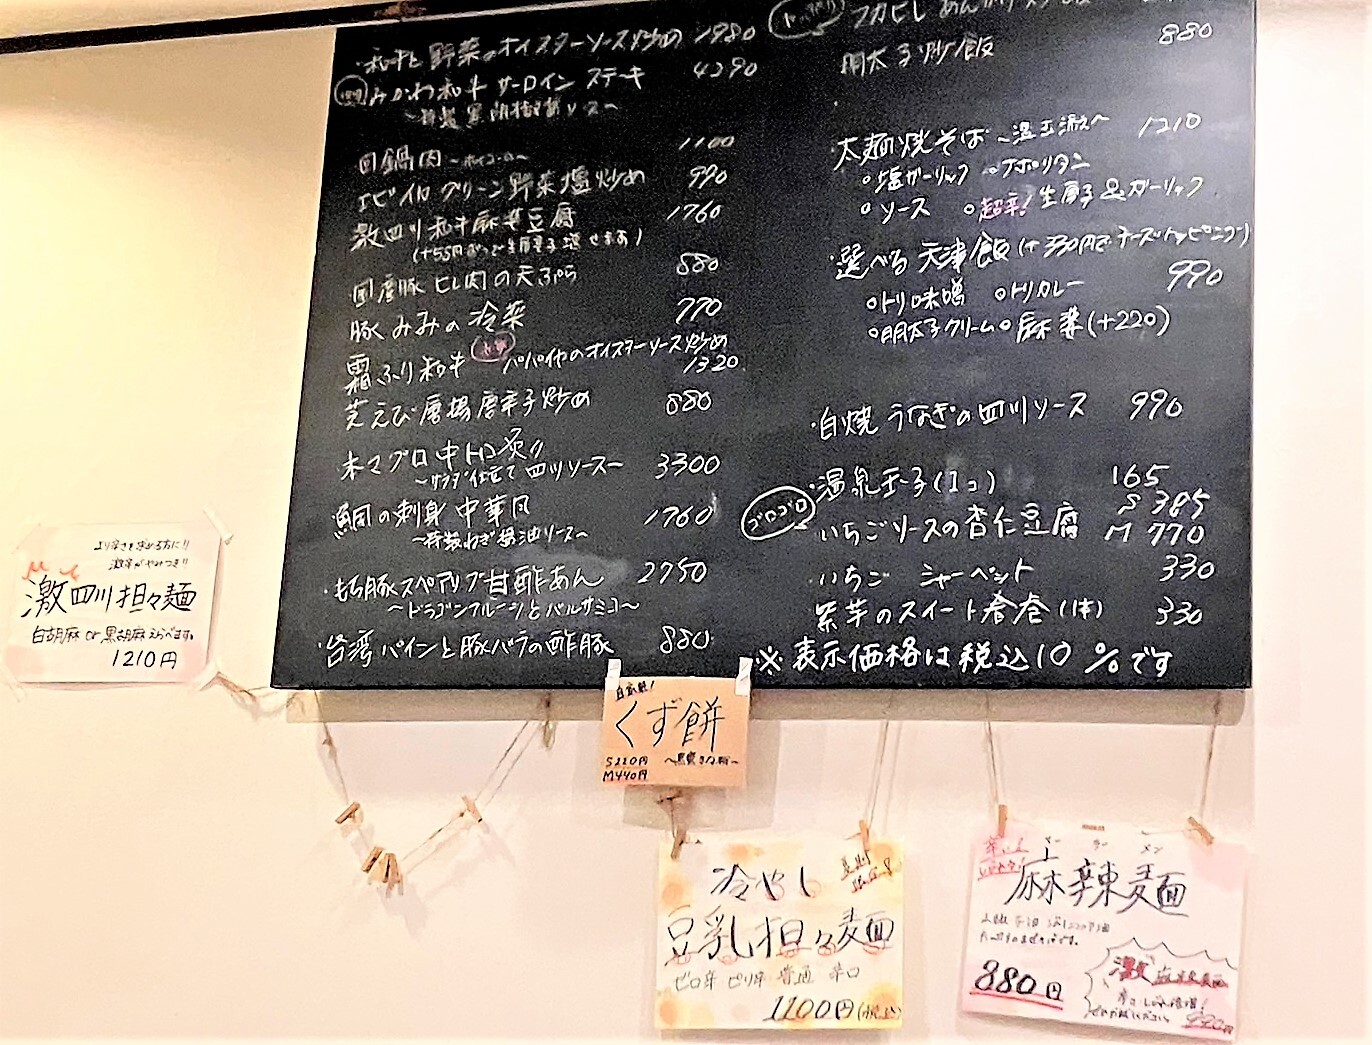 ・和牛と野菜のオイスターソース炒め 1980
みかわ和牛 サーロイン ステーキ 4290
回鍋肉 ～ホイコーロー～ 1100
エビイカ グリーン野菜塩炒め 990
激四川和牛麻婆豆腐 1760
国産豚ヒレ肉の天ぷら 880
豚みみの冷菜 770
霜ふり和牛 パパイヤのオイスターソース炒め
1320
芝えび唐揚唐辛子炒め 880
本マグロ中トロ炙り 3300
～サラダ仕立て 四川ソース～
鯛の刺身 中華風 1760
～特製ねぎ醤油ソース～
・もち豚スペアリブ甘酢あん 2750
～ドラゴンフルーツとバルサミコ～
・台湾パインと豚バラの酢豚 880
明太子炒飯 880
太麺焼そば ～温玉添え～ 1210
○塩ガーリック ○ナポリタン
○ソース ○超辛! 生唐子&ガーリック
・選べる天津飯(+330円でチーズトッピング)
990
○トリ味噌 ○トリカレー
○明太子クリーム ○麻婆(+220)
・白焼うなぎの四川ソース 990
・温泉玉子(1コ) 165
ゴロゴロ
いちごソースの杏仁豆腐 S 385
M 770
・いちご シャーベット 330
紫芋のスイート春巻(1本) 330
※表示価格は税込10%です
激四川担々麺
白胡麻 or 黒胡麻えらべます。
1210円
自家製!
くず餅
S220円
M440円
冷やし
豆乳担々麺
ゼロ辛 ピリ辛 普通 辛口
1100円(税込)
麻辣麺
880円
激 麻辣麺
990円